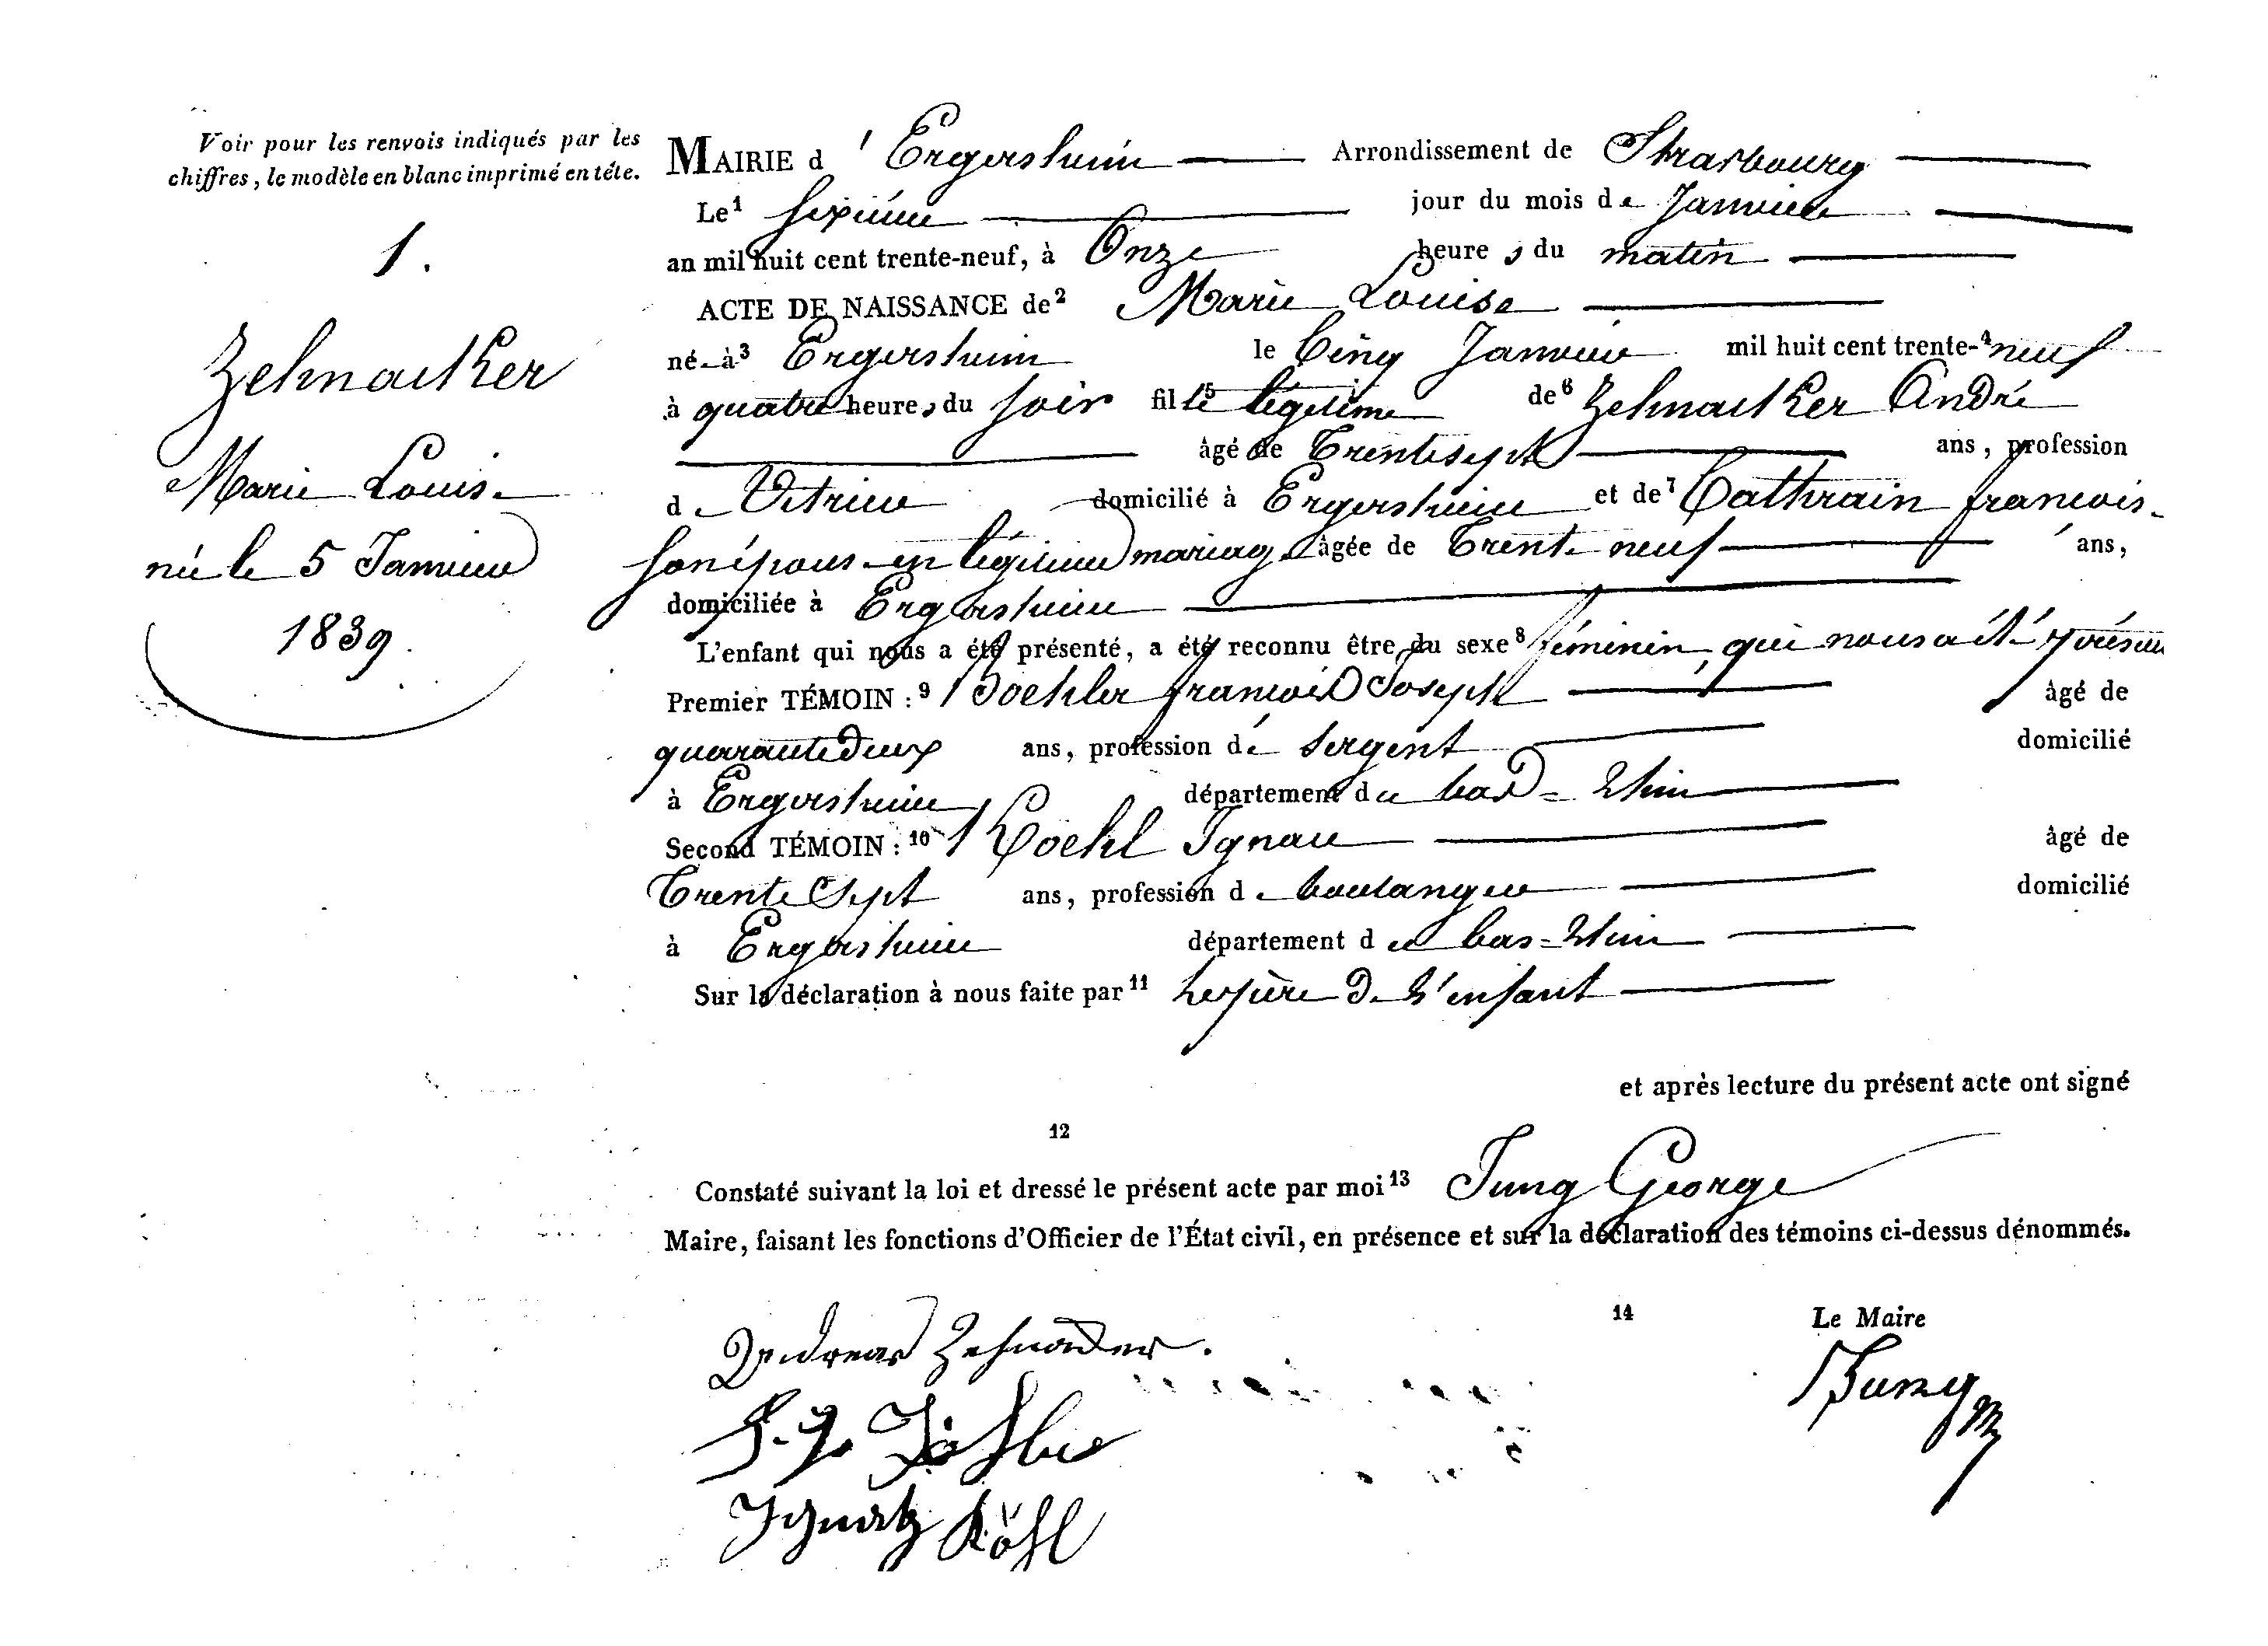 Voir pour les renvois indiqués par les
chiffres, le modèle en blanc imprimé en tête.
1.
Zehnacker
Marie Louise
née le 5 Janvier
1839.
MAIRIE d'Ergersheim Arrondissement de Strasbourg
Le¹ sixième jour du mois de Janvier
an mil huit cent trente-neuf, à Onze heures du matin
ACTE DE NAISSANCE de² Marie Louise
né à³ Ergersheim le Cinq Janvier mil huit cent trente-⁴neuf
à quatre heures du soir fille⁵ légitime de⁶ Zehnacker André
âgé de Trente sept ans, profession
de Vitrier domicilié à Ergersheim et de⁷ Cathrain francoise
son épouse en légitime mariage âgée de Trente neuf ans,
domiciliée à Ergersheim
L'enfant qui nous a été présenté, a été reconnu être du sexe⁸ féminin, qui nous a été présenté
Premier TÉMOIN :⁹ Joehler francois Joseph âgé de
quarante deux ans, profession de sergent domicilié
à Ergersheim département du bas-Rhin
Second TÉMOIN :¹⁰ Koehl Ignace âgé de
Trente Sept ans, profession de boulanger domicilié
à Ergersheim département du bas-Rhin
Sur la déclaration à nous faite par¹¹ le père de l'enfant
et après lecture du présent acte ont signé
12
Constaté suivant la loi et dressé le présent acte par moi¹³ Jung George
Maire, faisant les fonctions d'Officier de l'État civil, en présence et sur la déclaration des témoins ci-dessus dénommés.
14 Le Maire
Andreas Zehnacker.
Jung
F. J.
Ignatz Köhl